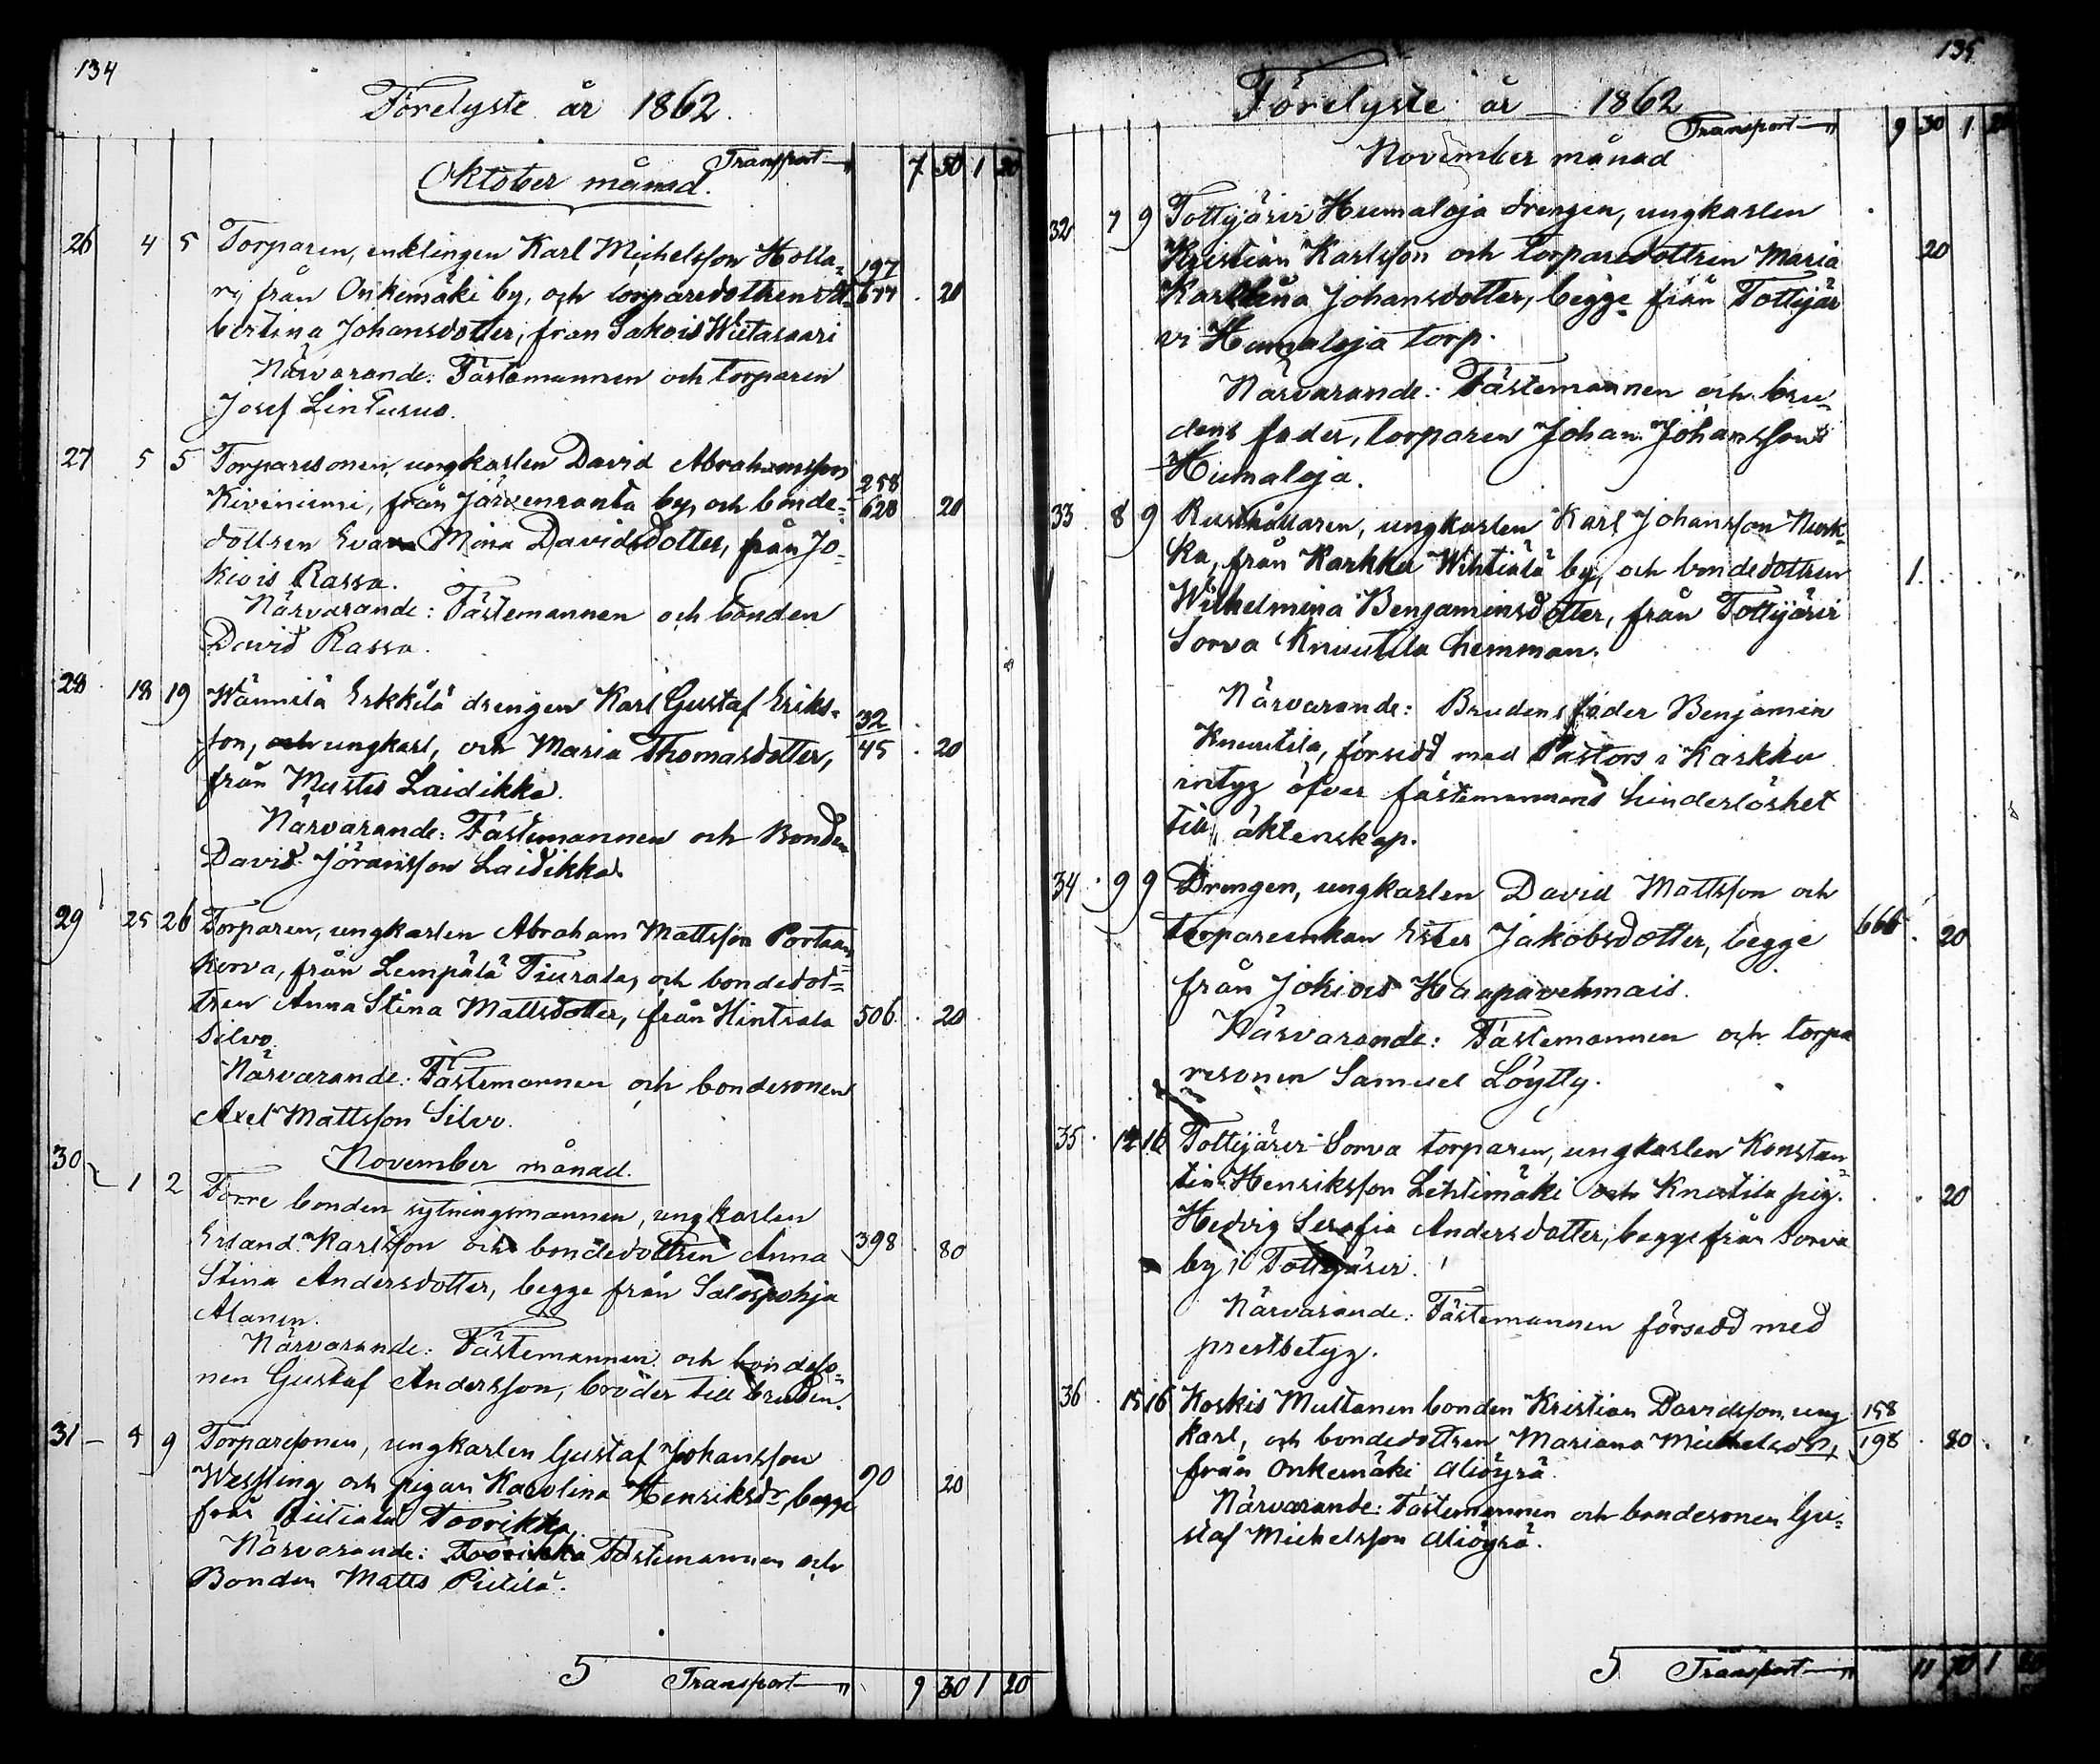 134
Förelyste år 1862.
Transport 7 50 1 20
Oktober månad.
26 4 5 Torparen, enklingen Karl Michelsson Holla-
ri, från Onkemäki by, och torparedottren Al- 197 677 20
bertina Johansdotter, från Sakois Wiitasaari
Närvarande: Fästemannen och torparen
Josef Linturus.
27 5 5 Torparesonen, ungkarlen David Abrahamsson
Kiviniemi, från Järvenranta by, och bonde- 258 628 20
dottren Eva Mina Davidsdotter, från Jo-
kiois Rassa.
Närvarande: Fästemannen och bonden
David Rassa.
28 18 19 Wännilä Erkkilä drengen Karl Gustaf Eriks-
son, och ungkarl, och Maria Thomasdotter, 32 45 20
från Mustis Laidikka.
Närvarande: Fästemannen och Bonden
David Jöransson Laidikka.
29 25 26 Torparen, ungkarlen Abraham Mattsson Portaan-
korva, från Lempälä Tiurala, och bondedot-
tren Anna Stina Mattsdotter, från Hintsala 506 20
Silvo.
Närvarande: Fästemannen och bondesonen
Axel Mattsson Silvo.
November månad.
30 1 2 Förre bonden sytningsmannen, ungkarlen
Erland Karlsson och bondedottren Anna 398 80
Stina Andersdotter, begge från Salospohja
Alanen.
Närvarande: Fästemannen och bondeso-
nen Gustaf Andersson, broder till bruden.
31 4 9 Torparesonen, ungkarlen Gustaf Johansson
Wessling och pigan Karolina Henriksdr, begge 90 20
från Toorikka.
Närvarande: Toorikka Fästemannen och
Bonden Matts Pietilä.
5 Transport 9 30 1 20
135
Förelyste år 1862
Transport 9 30 1 20
November månad
32 7 9 Tottijärvi Humaloja drengen, ungkarlen
Kristian Karlsson och torparedottren Maria 20
Karolina Johansdotter, begge från Tottijär
vi Humaloja torp.
Närvarande: Fästemannen och bru-
dens fader, torparen Johan Johansson
Humaloja.
33 8 9 Rusthållaren, ungkarlen Karl Johansson Nurk-
ka, från Karkku Wihtiälä by, och bondedottren 1
Wilhelmina Benjaminsdotter, från Tottijärvi
Sorva Knuutila hemman.
Närvarande: Brudens fader Benjamin
Knuutila, försedd med Pastors i Karkku
intyg öfver fästemannens hinderlöshet
till äktenskap.
34 9 9 Drengen, ungkarlen David Mattsson och
torpareenkan Ester Jakobsdotter, begge 666 20
från Jokiois Haapavehmais.
Närvarande: Fästemannen och torpa
resonen Samuel Löytty.
35 14 16 Tottijärvi Sorva torparen, ungkarlen Konstan-
tin Henriksson Lehtimäki och Knuutila pig. 20
Hedvig Serafia Andersdotter, begge från Sorva
by i Tottijärvi.
Närvarande: Fästemannen försedd med
prestbetyg.
36 15 16 Koskis Muttanen bonden Kristian Davidsson, ung 158
karl, och bondedottren Mariana Michelsdr, 198 80
från Onkemäki Aliöyrä.
Närvarande: Fästemannen och bondesonen Gu-
staf Michelsson Aliöyrä.
5 Transport 11 70 1 20